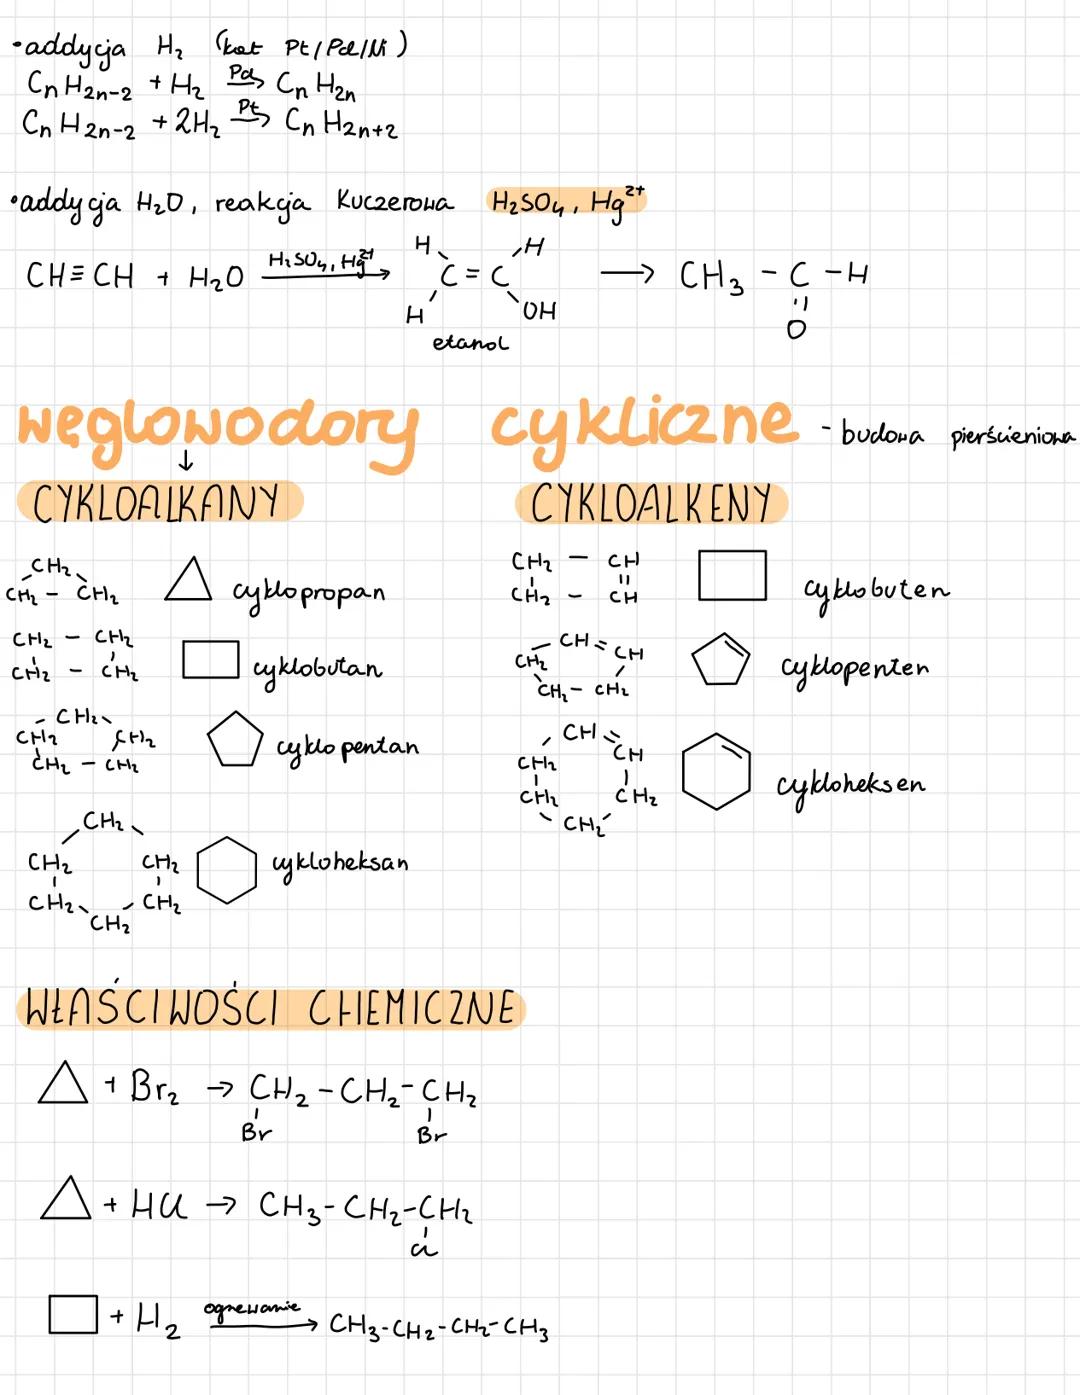 • addycja H₂ (kat Pt/Pd/Ni)
CnH2n-2 + H₂ Pd→ CnH2n
CnH2n-2 + 2H₂ Pt→ CnH2n+2
• addycja H₂O, reakcja Kuczerowa H₂SO₄, Hg²⁺
CH≡CH + H₂O H₂SO₄, Hg²⁺→ H H C=C H OH → CH₃-C-H
O
etanol
węglowodory cykliczne - budowa pierścieniowa
↓
CYKLOALKANY CYKLOALKENY
CH₂
CH₂ - CH₂ cyklopropan
CH₂ - CH₂
CH₂ - CH₂ cyklobutan
CH₂
CH₂ CH₂
CH₂ - CH₂ cyklopentan
CH₂
CH₂ CH₂
CH₂ CH₂
CH₂ cykloheksan
CH₂ - CH
CH₂ - CH cyklobuten
CH = CH
CH₂
CH₂ - CH₂ cyklopenten
CH = CH
CH₂
CH₂ CH₂
CH₂ cykloheksen
WŁAŚCIWOŚCI CHEMICZNE
+ Br₂ → CH₂-CH₂-CH₂
Br Br
+ HCl → CH₃-CH₂-CH₂
Cl
+ H₂ ogrewanie→ CH₃-CH₂-CH₂-CH₃